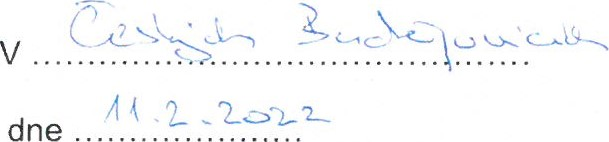 V Českých Budějovicích
dne 11.2.2022